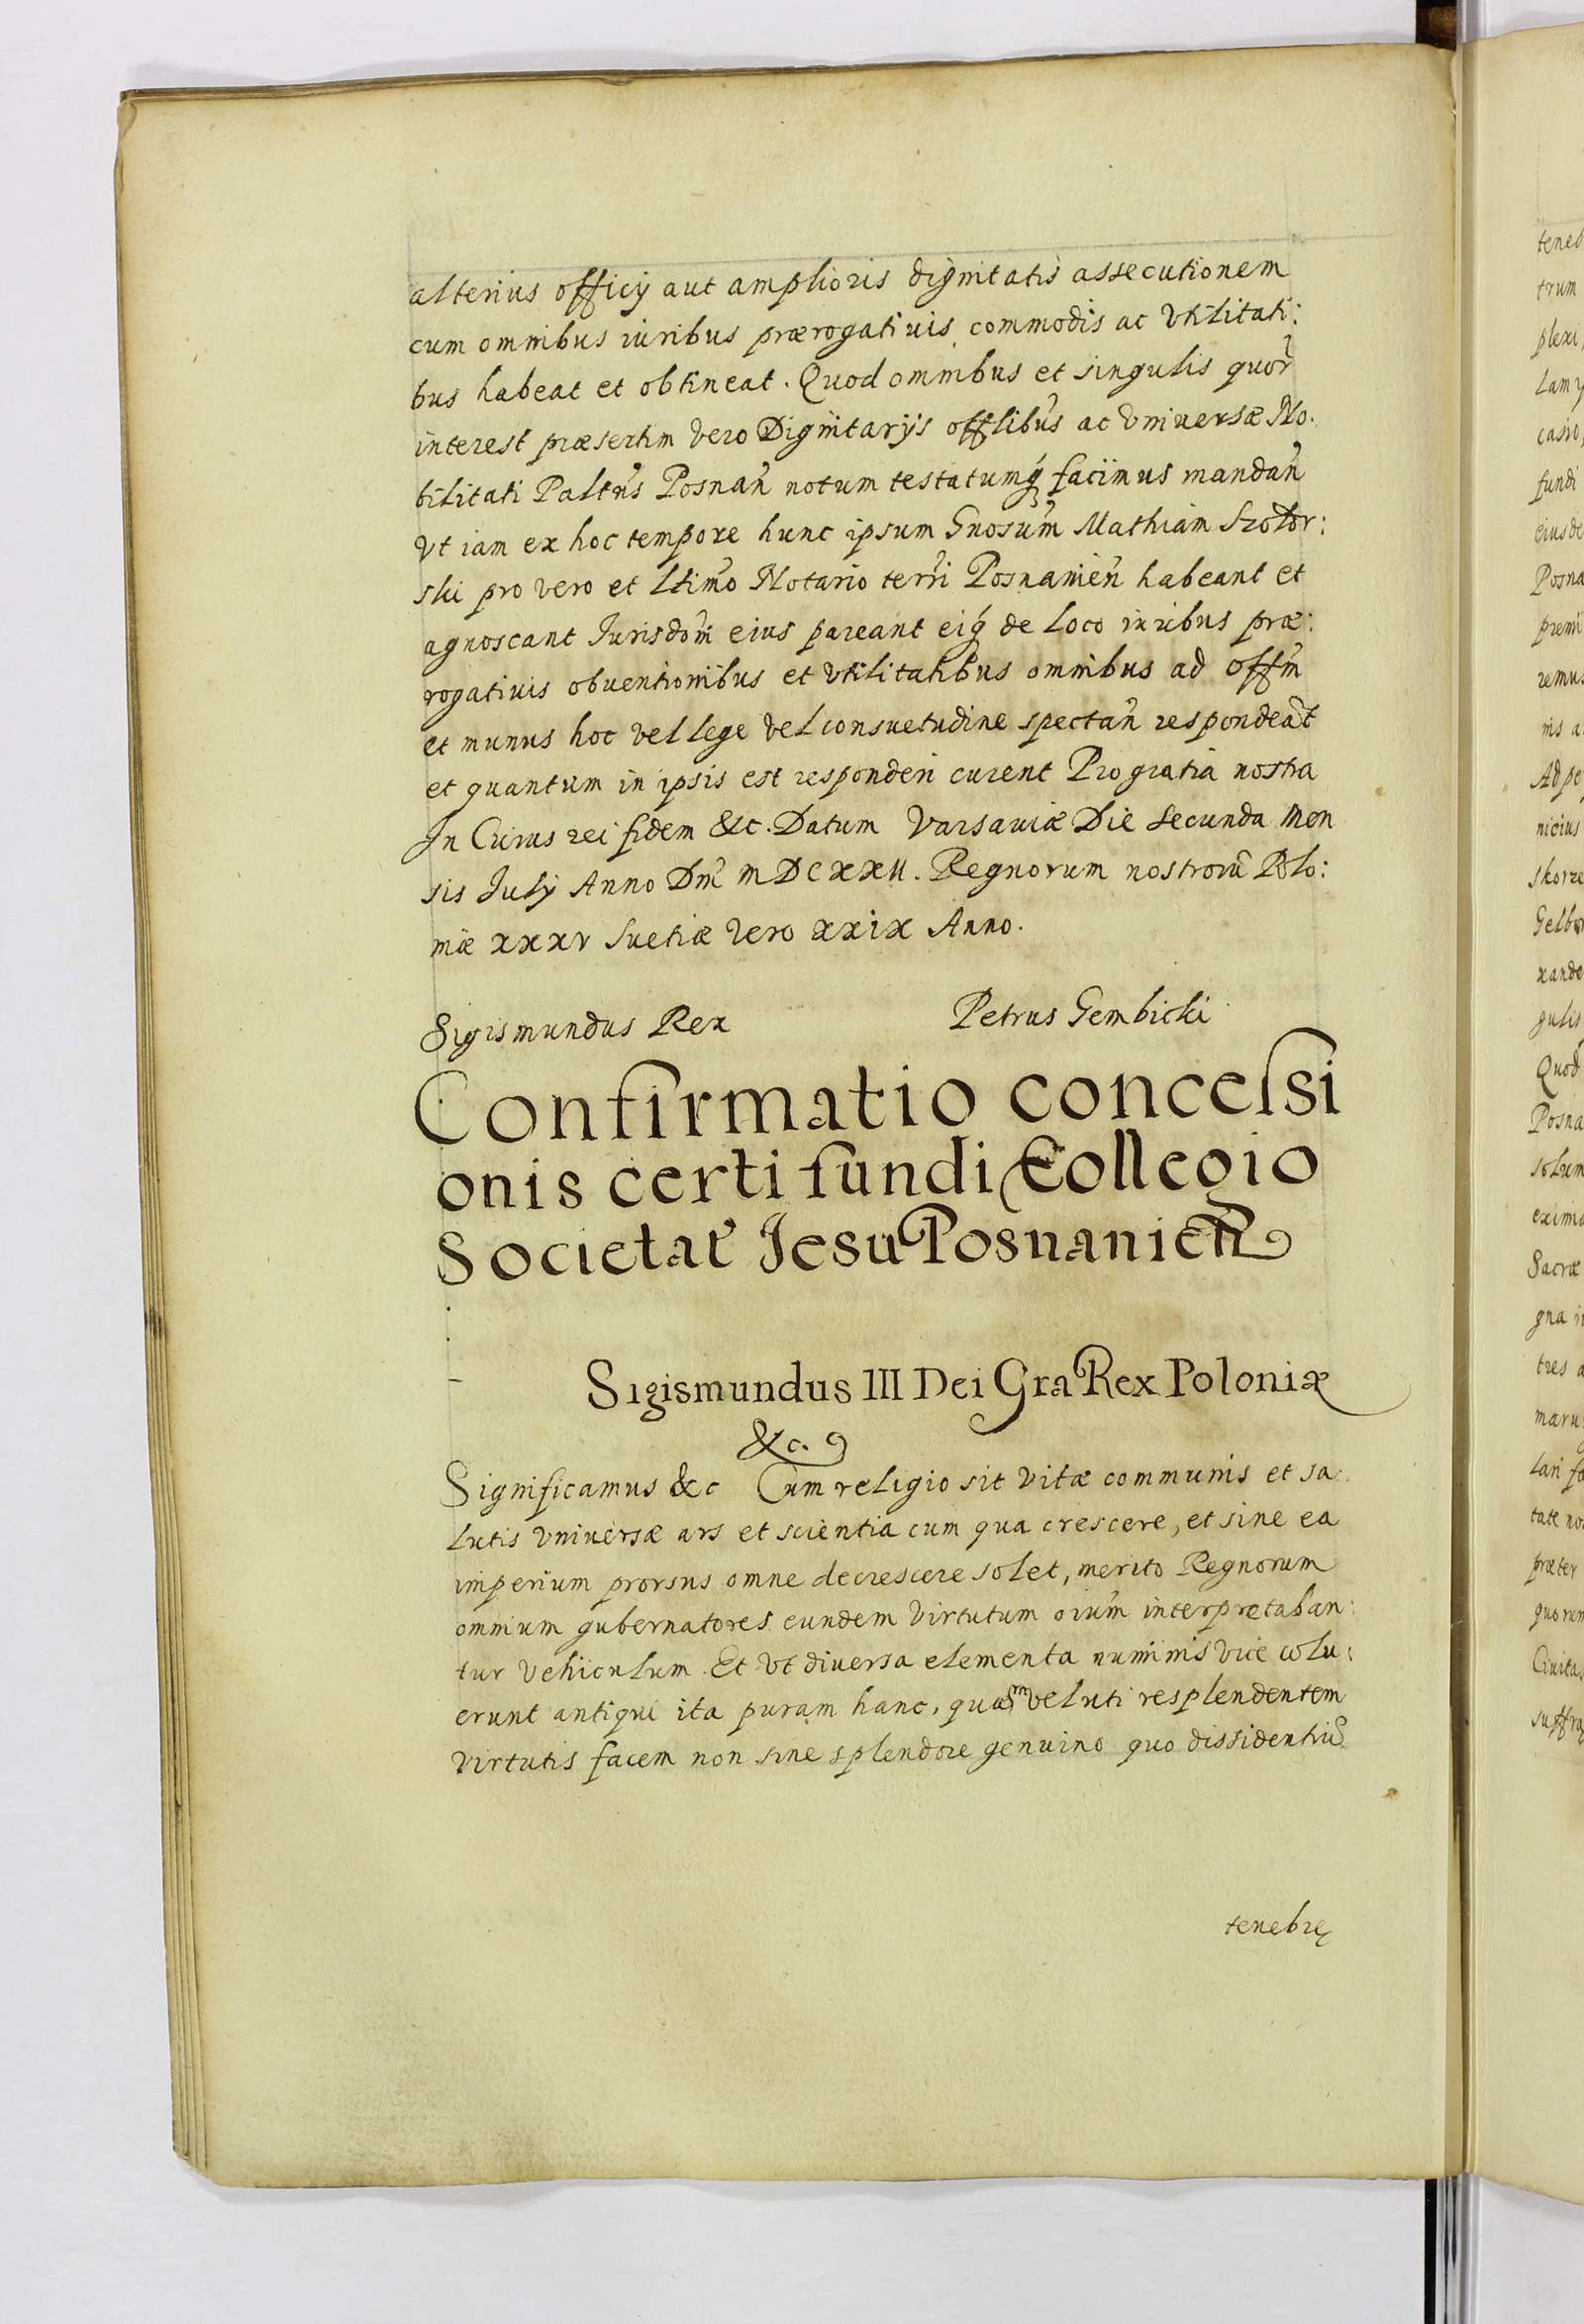 alterius officij aut amplioris dignitatis assecutionem
cum omnibus iuribus prærogatiuis commodis ac vtilitati:
bus habeat et obtineat. Quod omnibus et singulis quor̃
interest præsertim vero Dignitarijs offlibũs ac vniuersæ No.
bilitati Paltñs Posnañ notum testatumq́ facimus mandañ
vt iam ex hoc tempore hunc ipsum Gnosum̃ Mathiam Szoldr:
ski pro vero et Ltimõ Notario terr̃i Posnanień habeant et
agnoscant Jurisdom̃ eius pareant eiq́ de loco iuribus præ:
rogatiuis obuentionibus et vtilitatibus omnibus ad offm̃
et munus hoc vel lege vel consuetudine spectañ respondeãt
et quantum in ipsis est responderi curent Pro gratia nostra
In Cuius rei fidem &c. Datum Varsauiæ Die secunda Men
sis July Anno Dm̃ MDCXXII. Regnorum nostrorũ Polo:
niæ xxxv Suetiæ vero xxix Anno.
Sigismundus Rex Petrus Gembicki
Confirmatio concessi
onis certi fundi Collegio
Societat̃ Jesu Posnanień
Sigismundus III Dei Gra Rex Poloniæ
&c.
Significamus &c Cum religio sit vitæ communis et sa:
lutis vniuersæ ars et scientia cum qua crescere, et sine ea
imperium prorsus omne decrescere solet, merito Regnorum
omnium gubernatores eundem virtutum oium̃ interpretaban:
tur vehiculum. Et vt diuersa elementa numinis vice colu:
erunt antiqui ita puram hanc, quam veluti resplendentem
virtutis facem non sine splendore genuino quo dissidentiũ
tenebrę